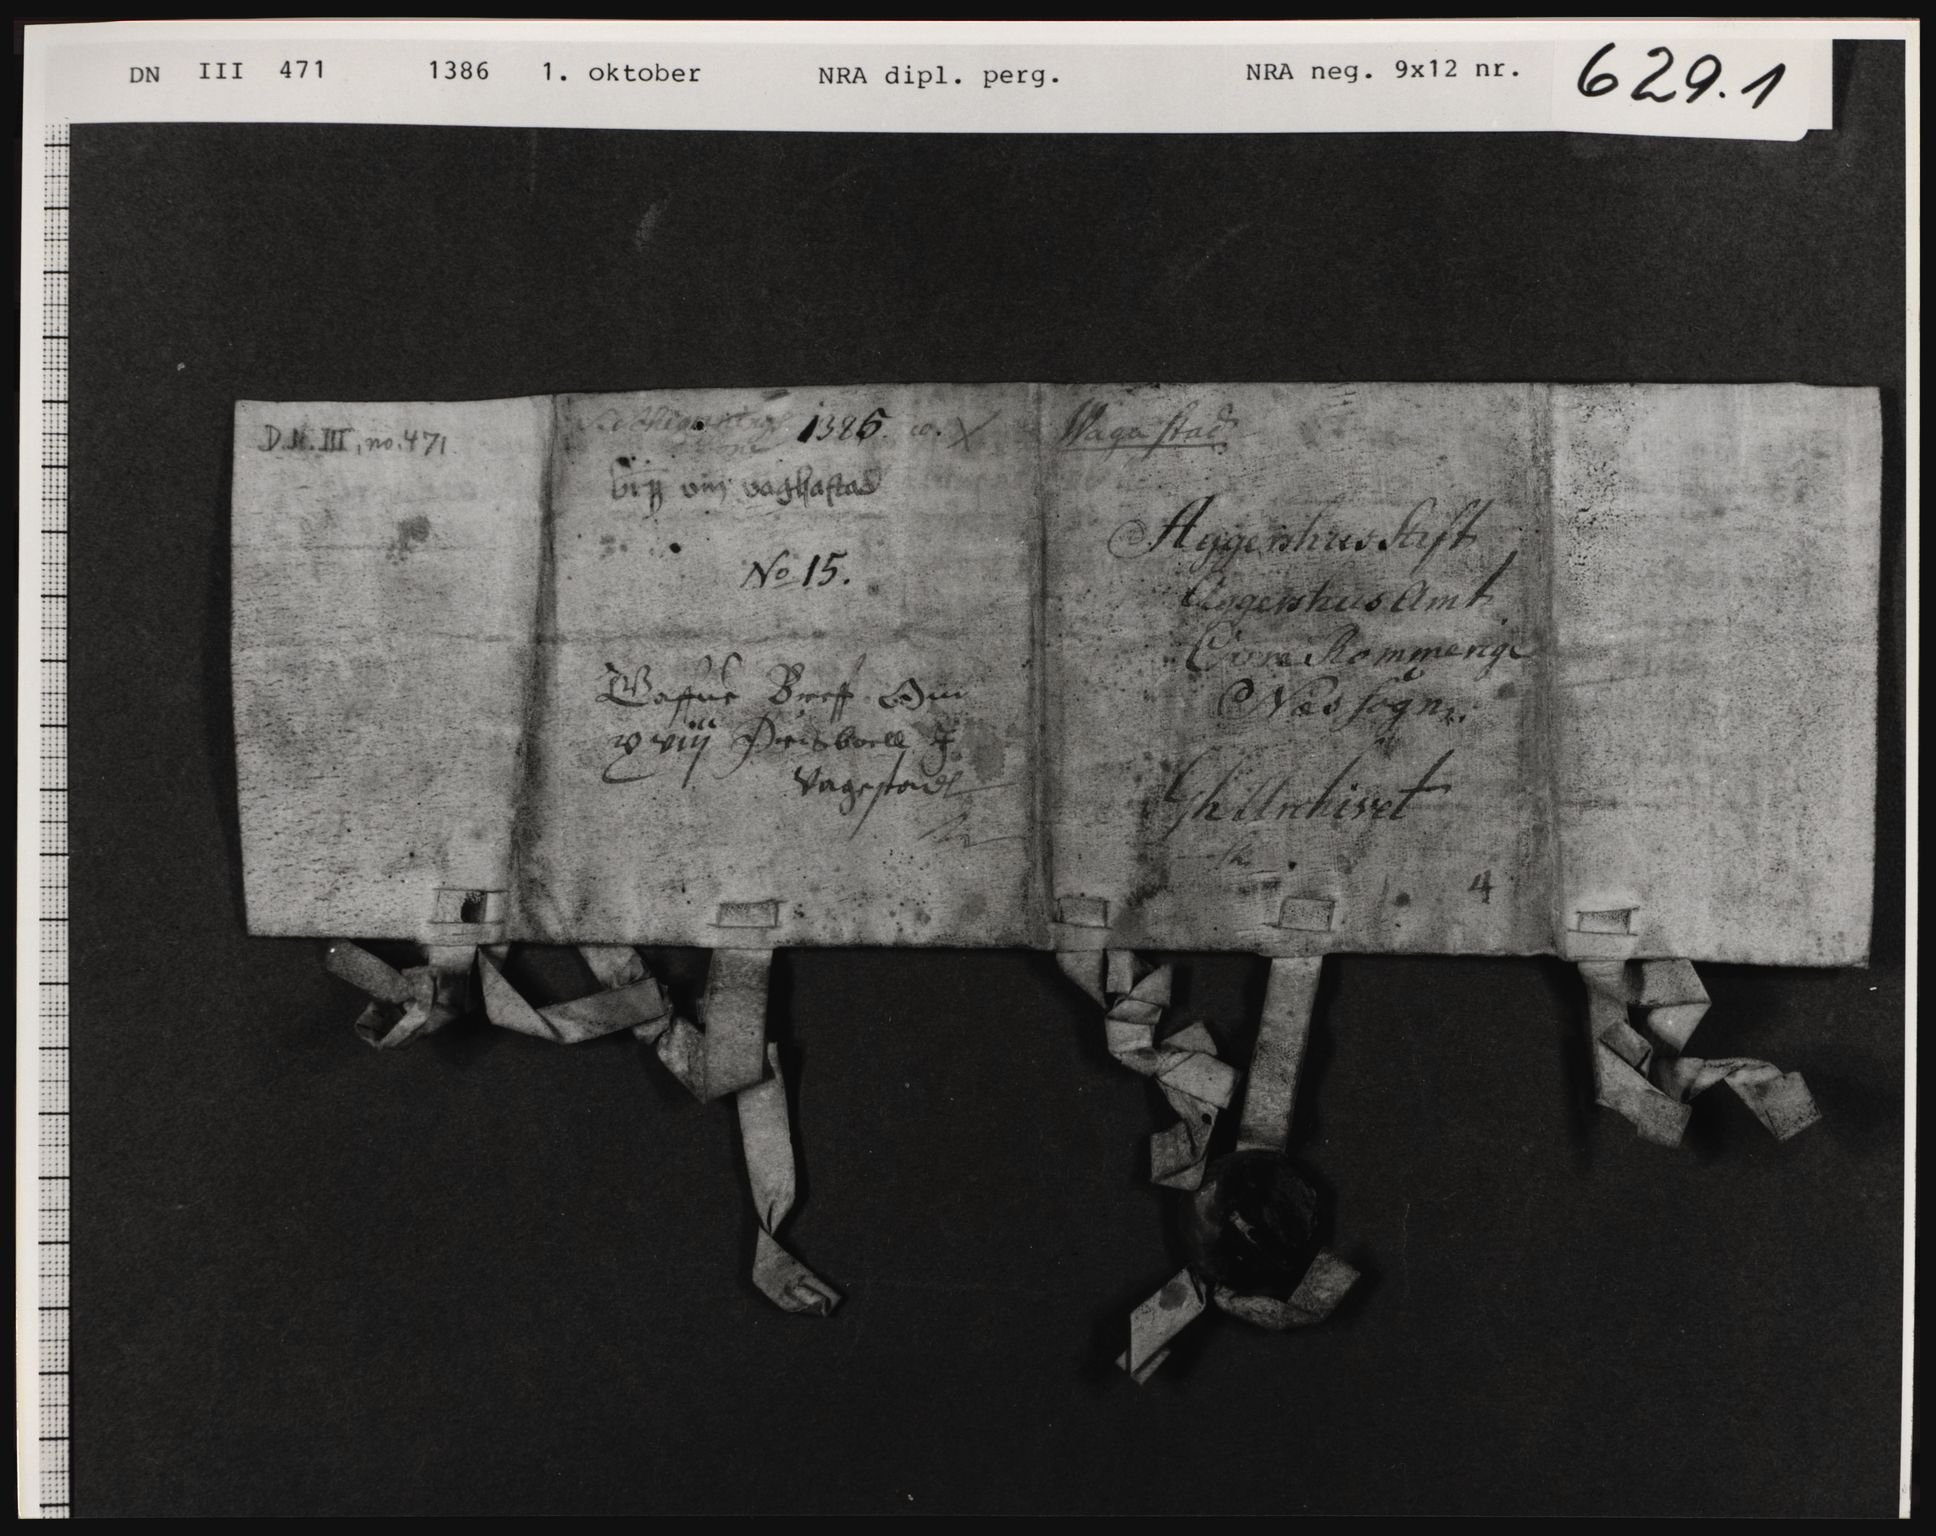 DN III 471 1386 1. oktober NRA dipl. perg. NRA neg. 9x12 nr. 629.1
D.N. III, no. 471
1386. X
breff vm vaghastad
No 15.
Breff Om
xviij
Vagestad
Waga stad
Aggershus Stift
Aggershus Amt
Rommerige
Næs sogn.
Gh: Archivet
4